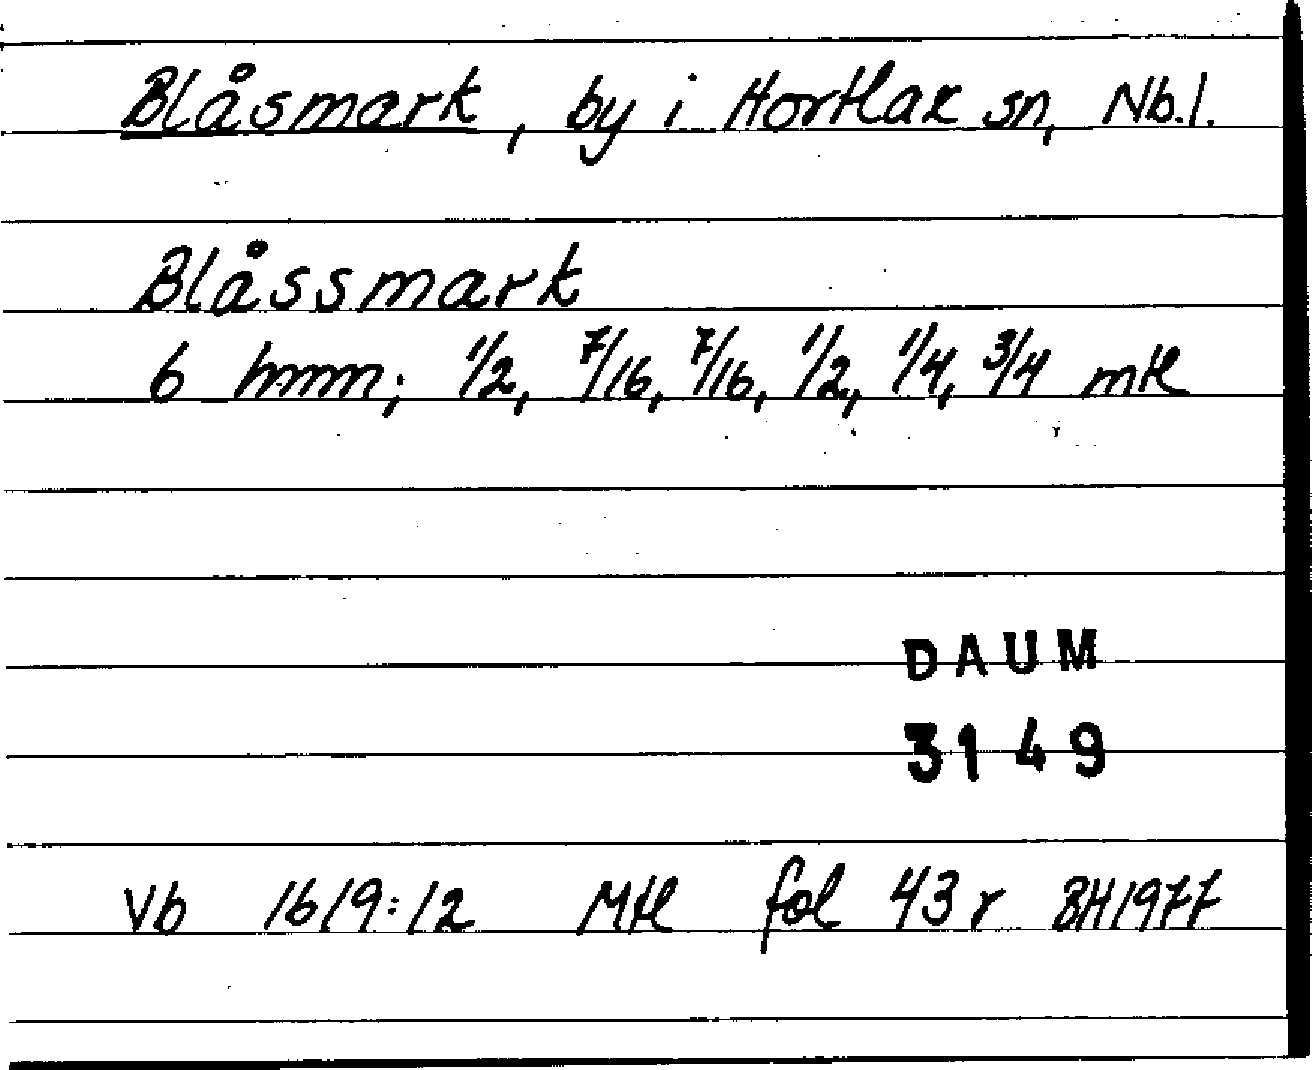 Blåsmark, by i Hortlax sn, Nb.l.
Blåssmark
6 hmm; 1/2, 7/16, 7/16, 1/2, 1/4, 3/4 mtl
DAUM
3149
Vb 1619:12 Mtl fol 43r BH1977